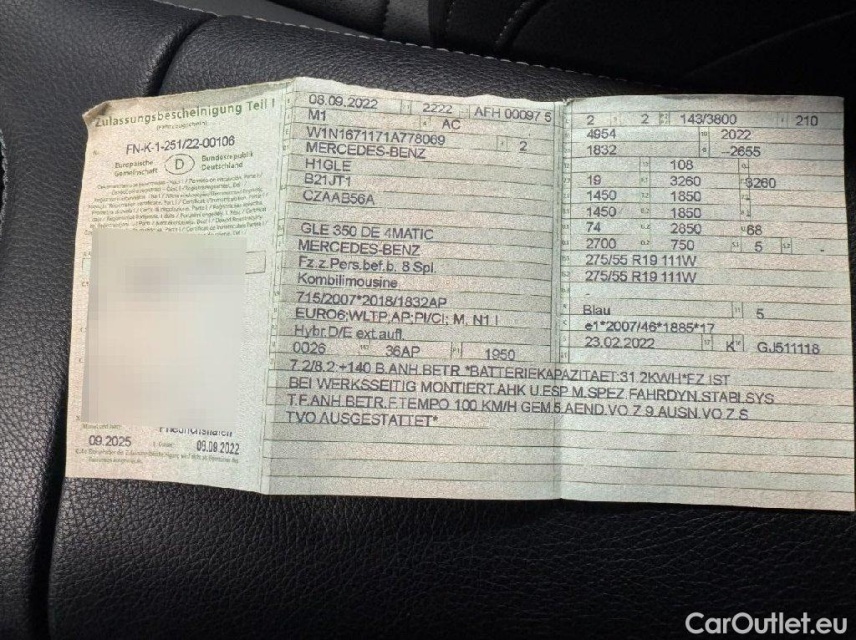 Zulassungsbescheinigung Teil I
FN-K-1-251/22-00106
Europäische
Gemeinschaft
D
Bundesrepublik
Deutschland
Friedrichshafen
09.2025
09.09.2022
08.09.2022 2222 AFH 00097 5
M1 AC
W1N1671171A778069 2
MERCEDES-BENZ
H1GLE
B21JT1
CZAAB56A
GLE 350 DE 4MATIC
MERCEDES-BENZ
Fz.z.Pers.bef.b. 8 Spl.
Kombilimousine
715/2007*2018/1832AP
EURO6;WLTP,AP;PI/CI; M, N1 I
Hybr.D/E ext.aufl.
0026 36AP 1950
2 2 143/3800 210
4954 2022
1832 -2655
108
19 3260 3260
1450 1850
1450 1850
74 2850 68
2700 750 5 -
275/55 R19 111W
275/55 R19 111W
-
Blau 5
e1*2007/46*1885*17
23.02.2022 K GJ511118
7.2/8.2:+140 B.ANH.BETR.*BATTERIEKAPAZITAET:31,2KWH*FZ.IST
BEI WERKSSEITIG MONTIERT.AHK U.ESP M.SPEZ.FAHRDYN.STABI.SYS
T.F.ANH.BETR.F.TEMPO 100 KM/H GEM.5.AEND.VO.Z.9.AUSN.VO.Z.S
TVO.AUSGESTATTET*
CarOutlet.eu